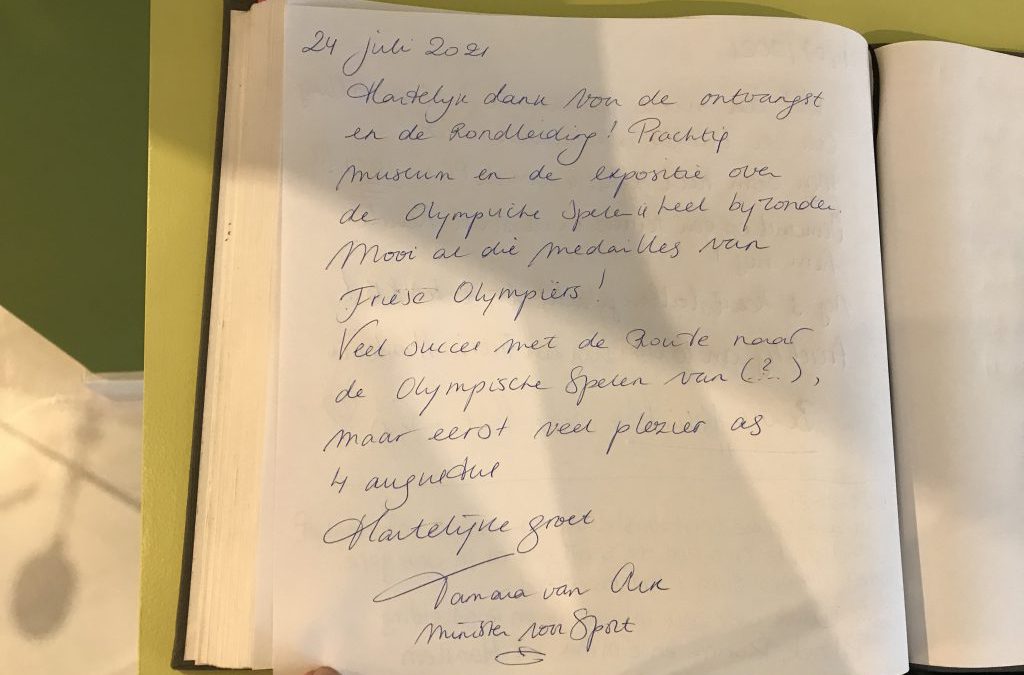 24 juli 2021
Hartelijk dank voor de ontvangst
en de Rondleiding! Prachtig
museum en de expositie over
de Olympische Spelen is heel bijzonder.
Mooi al die medailles van
Friese Olympiërs!
Veel succes met de Route naar
de Olympische Spelen van (?...),
maar eerst veel plezier as
4 augustus
Hartelijke groet
Tamara van Ark
Minister voor Sport